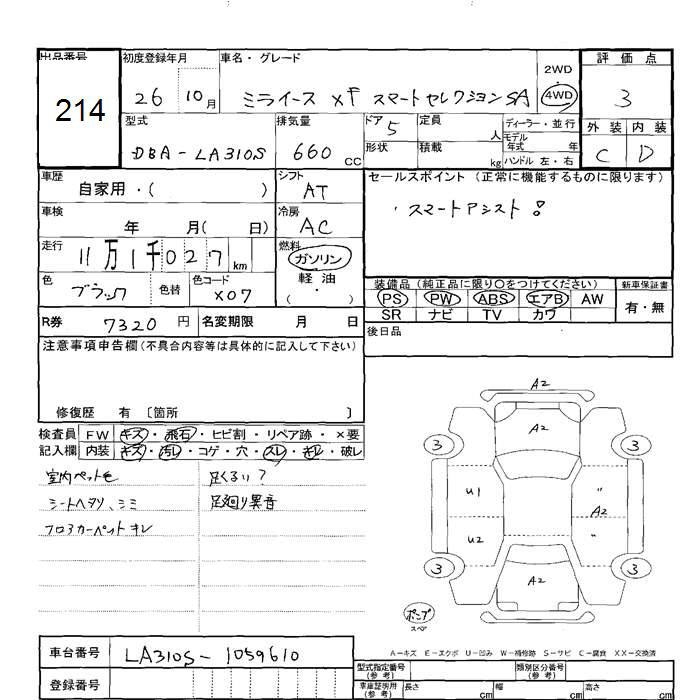 出品番号 初度登録年月 車名・グレード 2WD 評価点
214 26 10月 ミライース Xf スマートセレクションSA 4WD 3
型式 排気量 ドア 5 定員 人 ディーラー・並行 外装 内装
DBA-LA310S 660 CC 形状 積載 kg モデル年式 年 C D
ハンドル 左・右
車歴 シフト セールスポイント (正常に機能するものに限ります)
自家用・( ) AT
・スマートアシスト!
車検 冷房
年 月( 日) AC
走行 燃料
11万1千027 km ガソリン
軽油
・( )
色 色替 色コード
ブラック X07
装備品 (純正品に限り○をつけてください) 新車保証書
PS PW ABS エアB AW 有・無
SR ナビ TV カワ
R券 7320 円 名変期限 月 日 後日品
注意事項申告欄 (不具合内容等は具体的に記入して下さい)
修復歴 有 〔箇所 〕
検査員 FW キズ・飛石・ヒビ割・リペア跡・×要
記入欄 内装 キズ・汚レ・コゲ・穴・スレ・キレ・破レ
室内ペット毛 足ぐるい?
シートヘタリ、シミ 足廻り異音
フロアカーペットキレ
A2
A2
3 3
U1 〃
A2
U2 〃
3 3
A2
ポンプ
スペア
A-キズ E-エクボ U-凹み W-補修跡 S-サビ C-腐食 XX-交換済
車台番号 LA310S-1059610
型式指定番号(参考) 類別区分番号(参考)
登録番号
車庫証明用(参考) 長さ cm 幅 cm 高さ cm